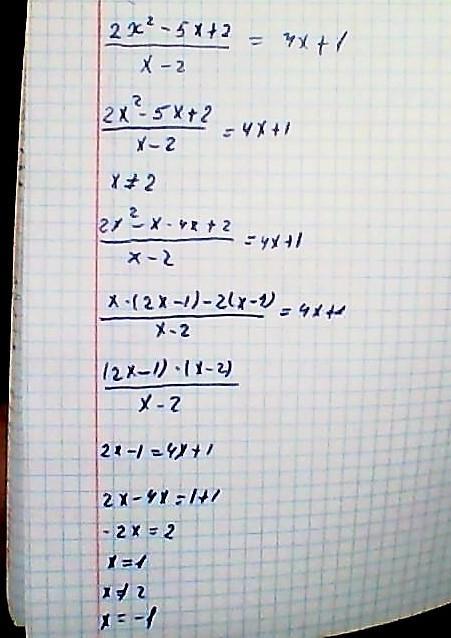 2x² - 5x + 2 / x - 2 = 4x + 1
2x² - 5x + 2 / x - 2 = 4x + 1
x ≠ 2
2x² - x - 4x + 2 / x - 2 = 4x + 1
x · (2x - 1) - 2(x - 1) / x - 2 = 4x + 1
(2x - 1) · (x - 2) / x - 2
2x - 1 = 4x + 1
2x - 4x = 1 + 1
-2x = 2
x = 1
x ≠ 2
x = -1